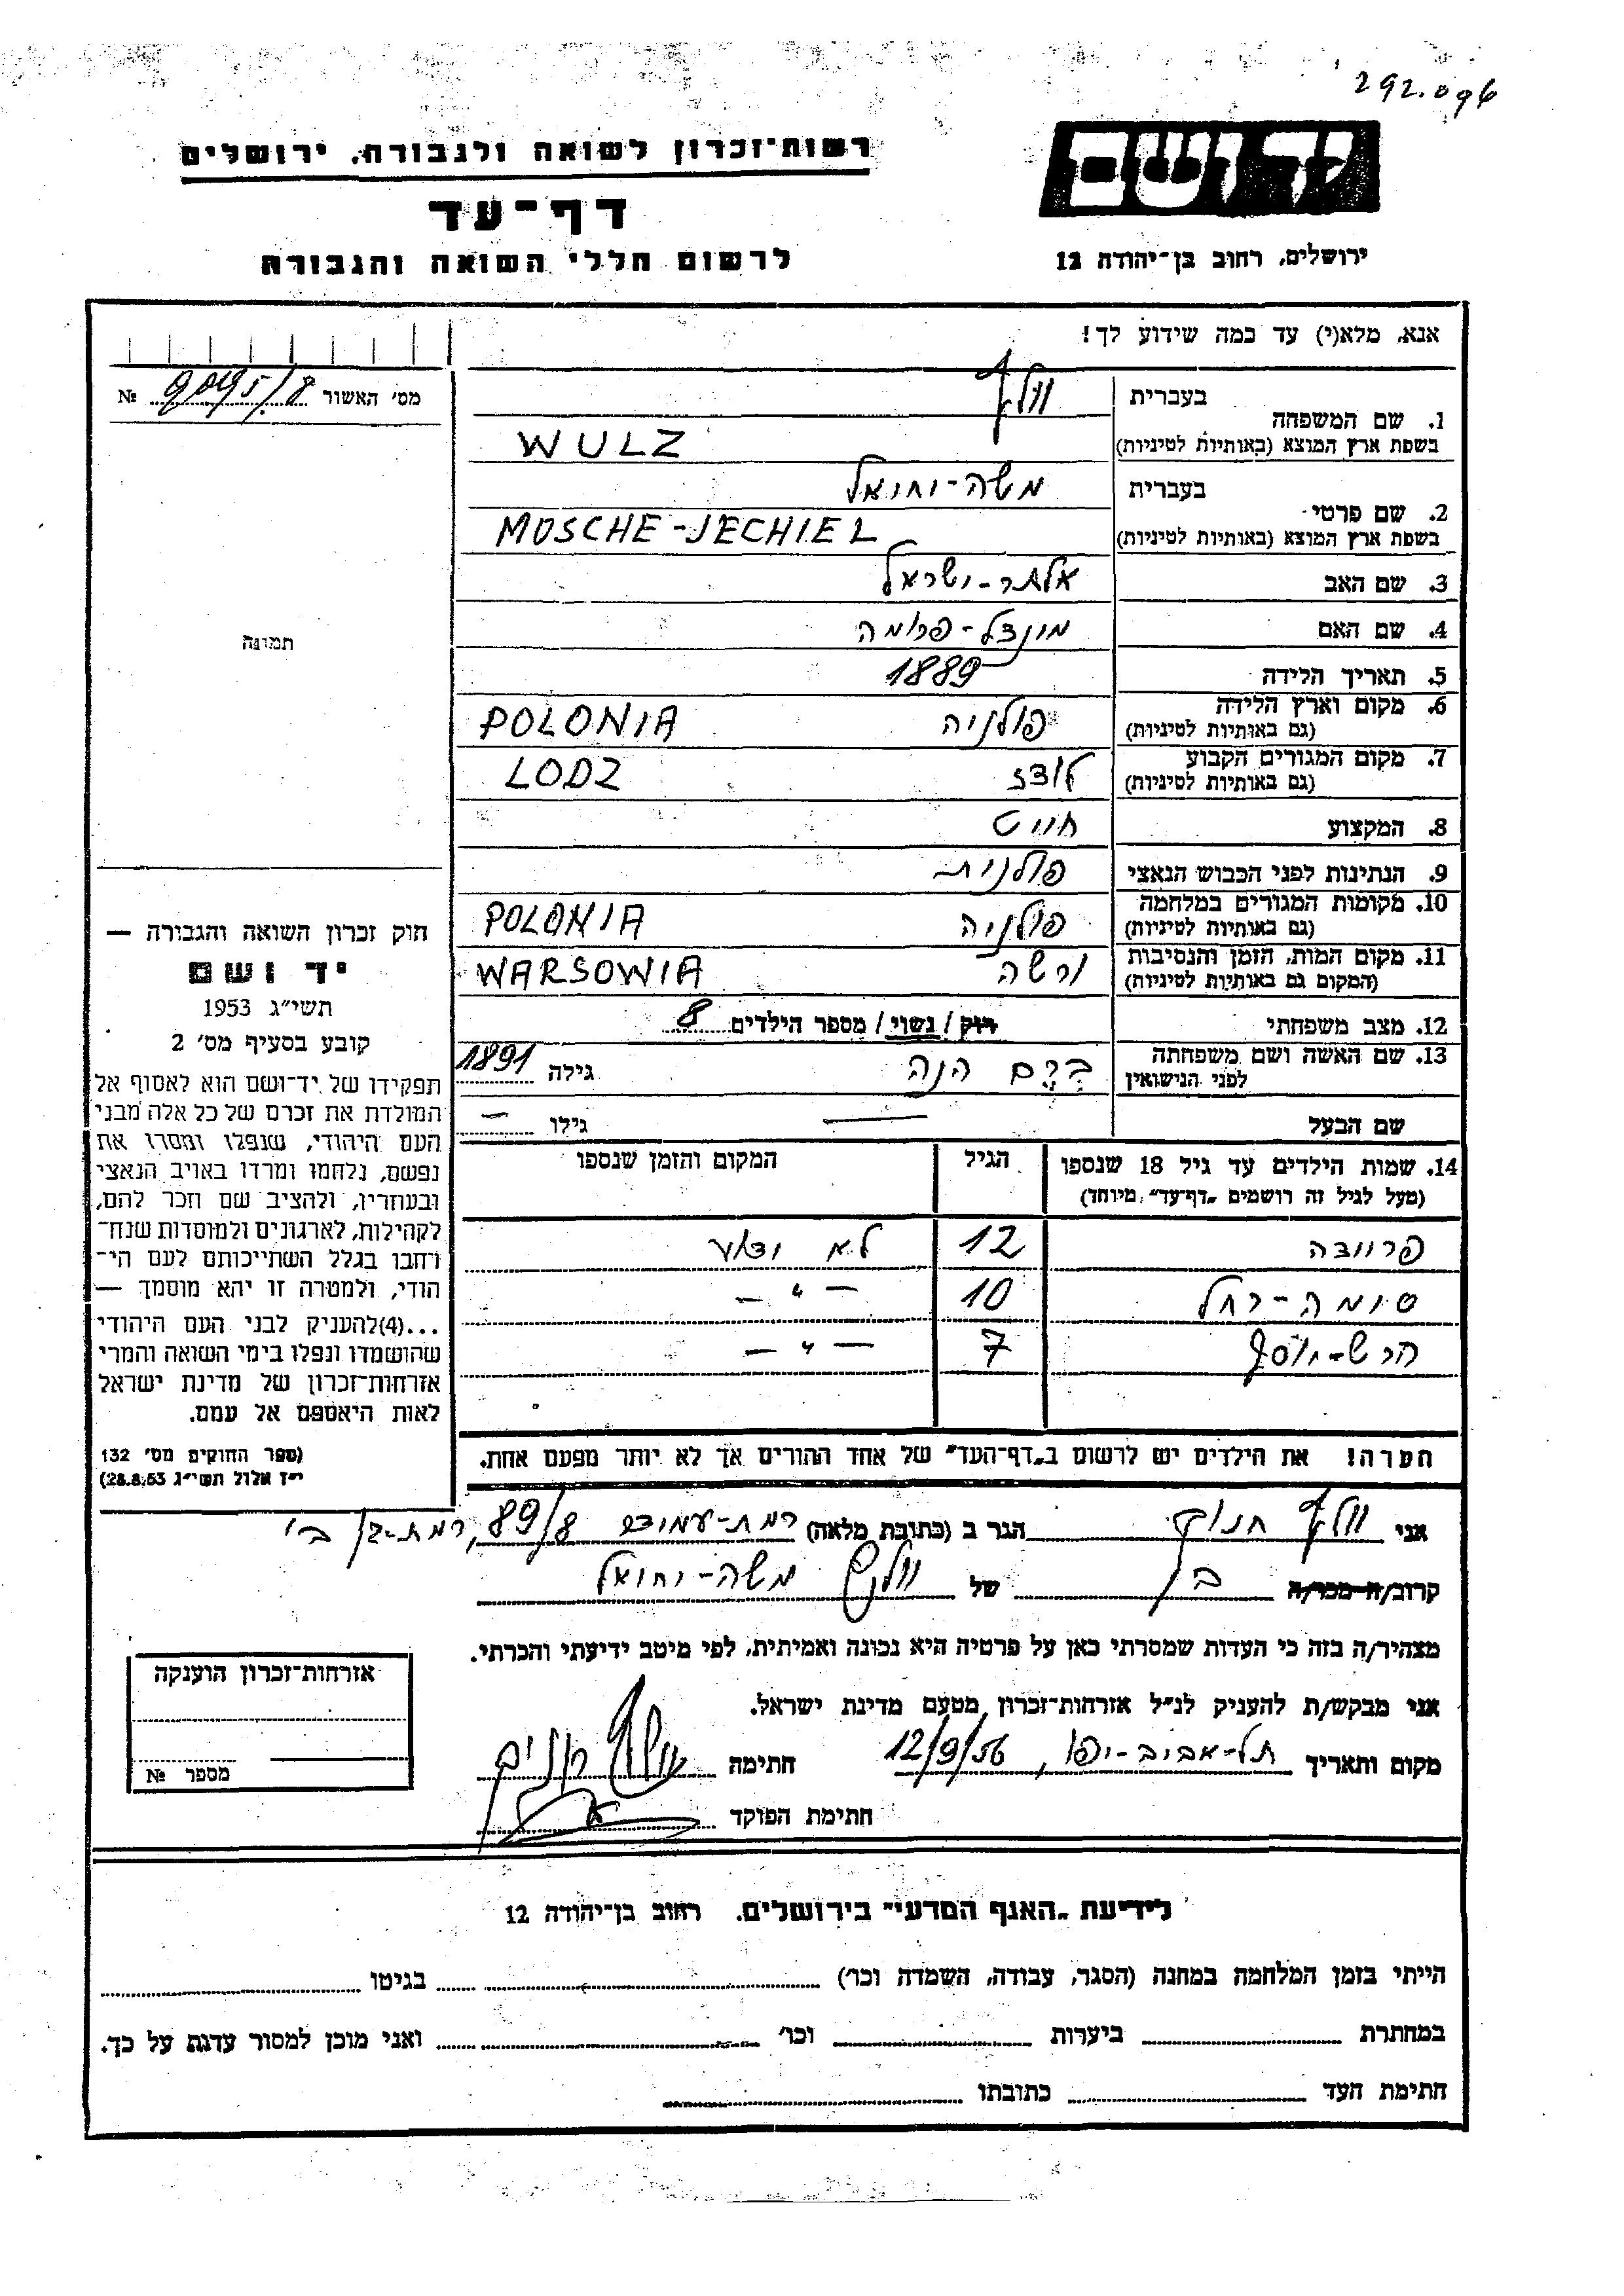 292.096
יד ושם
רשות־זכרון לשואה ולגבורה, ירושלים
דף־עד
לרשום חללי השואה והגבורה
ירושלים, רחוב בן־יהודה 12
אנא, מלא(י) עד כמה שידוע לך!
מס' האשור № 
1. שם המשפחה
בעברית
בשפת ארץ המוצא (באותיות לטיניות)
WULZ
2. שם פרטי
בעברית משה-יחיאל
בשפת ארץ המוצא (באותיות לטיניות)
MOSCHE-JECHIEL
3. שם האב אלתר-ישראל
4. שם האם
5. תאריך הלידה 1889
6. מקום וארץ הלידה פולניה POLONIA
(גם באותיות לטיניות)
7. מקום המגורים הקבוע לודז LODZ
(גם באותיות לטיניות)
8. המקצוע חייט
9. הנתינות לפני הכבוש הנאצי פולנית
10. מקומות המגורים במלחמה פולניה POLONIA
(גם באותיות לטיניות)
11. מקום המות, הזמן והנסיבות ורשה WARSOWIA
(המקום גם באותיות לטיניות)
12. מצב משפחתי רוק / נשוי / מספר הילדים 8
13. שם האשה ושם משפחתה הנה גילה 1891
לפני הנישואין
שם הבעל — גילו —
14. שמות הילדים עד גיל 18 שנספו הגיל המקום והזמן שנספו
(מעל לגיל זה רושמים „דף־עד" מיוחד)
12 לא ידוע
סימה-רחל 10 — " —
הרש-יוסף 7 — " —
הערה! את הילדים יש לרשום ב„דף־העד" של אחד ההורים אך לא יותר מפעם אחת.
תמונה
חוק זכרון השואה והגבורה —
יד ושם
תשי"ג 1953
קובע בסעיף מס' 2
תפקידו של יד־ושם הוא לאסוף אל
המולדת את זכרם של כל אלה מבני
העם היהודי, שנפלו ומסרו את
נפשם, נלחמו ומרדו באויב הנאצי
ובעוזריו, ולהציב שם וזכר להם,
לקהילות, לארגונים ולמוסדות שנח־
רבו בגלל השתייכותם לעם הי־
הודי, ולמטרה זו יהא מוסמך —
...(4)להעניק לבני העם היהודי
שהושמדו ונפלו בימי השואה והמרי
אזרחות־זכרון של מדינת ישראל
לאות היאספם אל עמם.
(ספר החוקים מס' 132
י"ז אלול תשי"ג 28.8.53)
אני חנוך הגר ב (כתובת מלאה) 89/8, רמת-גן ב'
קרוב/ה מכר/ה בן של משה-יחיאל
מצהיר/ה בזה כי העדות שמסרתי כאן על פרטיה היא נכונה ואמיתית, לפי מיטב ידיעתי והכרתי.
אני מבקש/ת להעניק לנ"ל אזרחות־זכרון מטעם מדינת ישראל.
מקום ותאריך תל-אביב-יפו, 12/9/56 חתימה
חתימת הפוקד
אזרחות־זכרון הוענקה
מספר №
לידיעת „האגף המדעי" בירושלים, רחוב בן־יהודה 12
הייתי בזמן המלחמה במחנה (הסגר, עבודה, השמדה וכו') בגיטו
במחתרת ביערות וכו' ואני מוכן למסור עדות על כך.
חתימת העד כתובתו